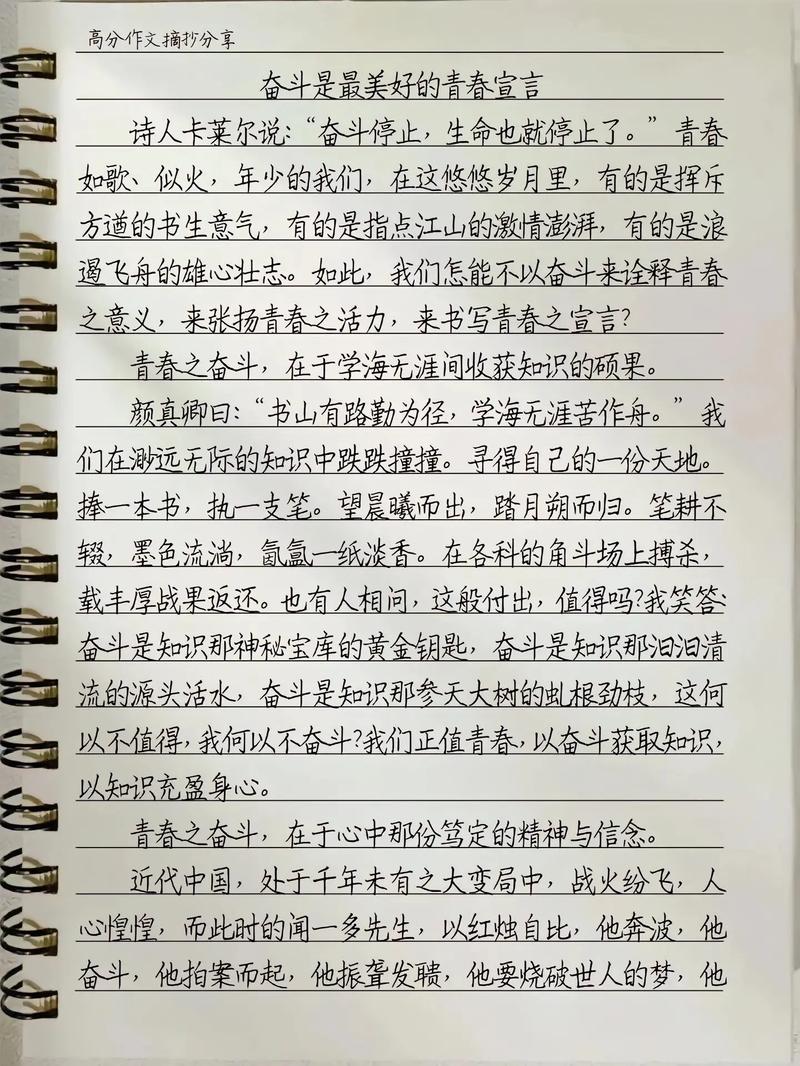 高分作文摘抄分享
奋斗是最美好的青春宣言
诗人卡莱尔说:“奋斗停止，生命也就停止了。”青春
如歌、似火，年少的我们，在这悠悠岁月里，有的是挥斥
方遒的书生意气，有的是指点江山的激情澎湃，有的是浪
遏飞舟的雄心壮志。如此，我们怎能不以奋斗来诠释青春
之意义，来张扬青春之活力，来书写青春之宣言?
青春之奋斗，在于学海无涯间收获知识的硕果。
颜真卿曰:“书山有路勤为径，学海无涯苦作舟。”我
们在渺远无际的知识中跌跌撞撞。寻得自己的一份天地。
捧一本书，执一支笔。望晨曦而出，踏月朔而归。笔耕不
辍，墨色流淌，氤氲一纸淡香。在各科的角斗场上搏杀，
载丰厚战果返还。也有人相问，这般付出，值得吗?我笑答:
奋斗是知识那神秘宝库的黄金钥匙，奋斗是知识那汩汩清
流的源头活水，奋斗是知识那参天大树的虬根劲枝，这何
以不值得，我何以不奋斗?我们正值青春，以奋斗获取知识，
以知识充盈身心。
青春之奋斗，在于心中那份笃定的精神与信念。
近代中国，处于千年未有之大变局中，战火纷飞，人
心惶惶，而此时的闻一多先生，以红烛自比，他奔波，他
奋斗，他拍案而起，他振聋发聩，他要烧破世人的梦，他